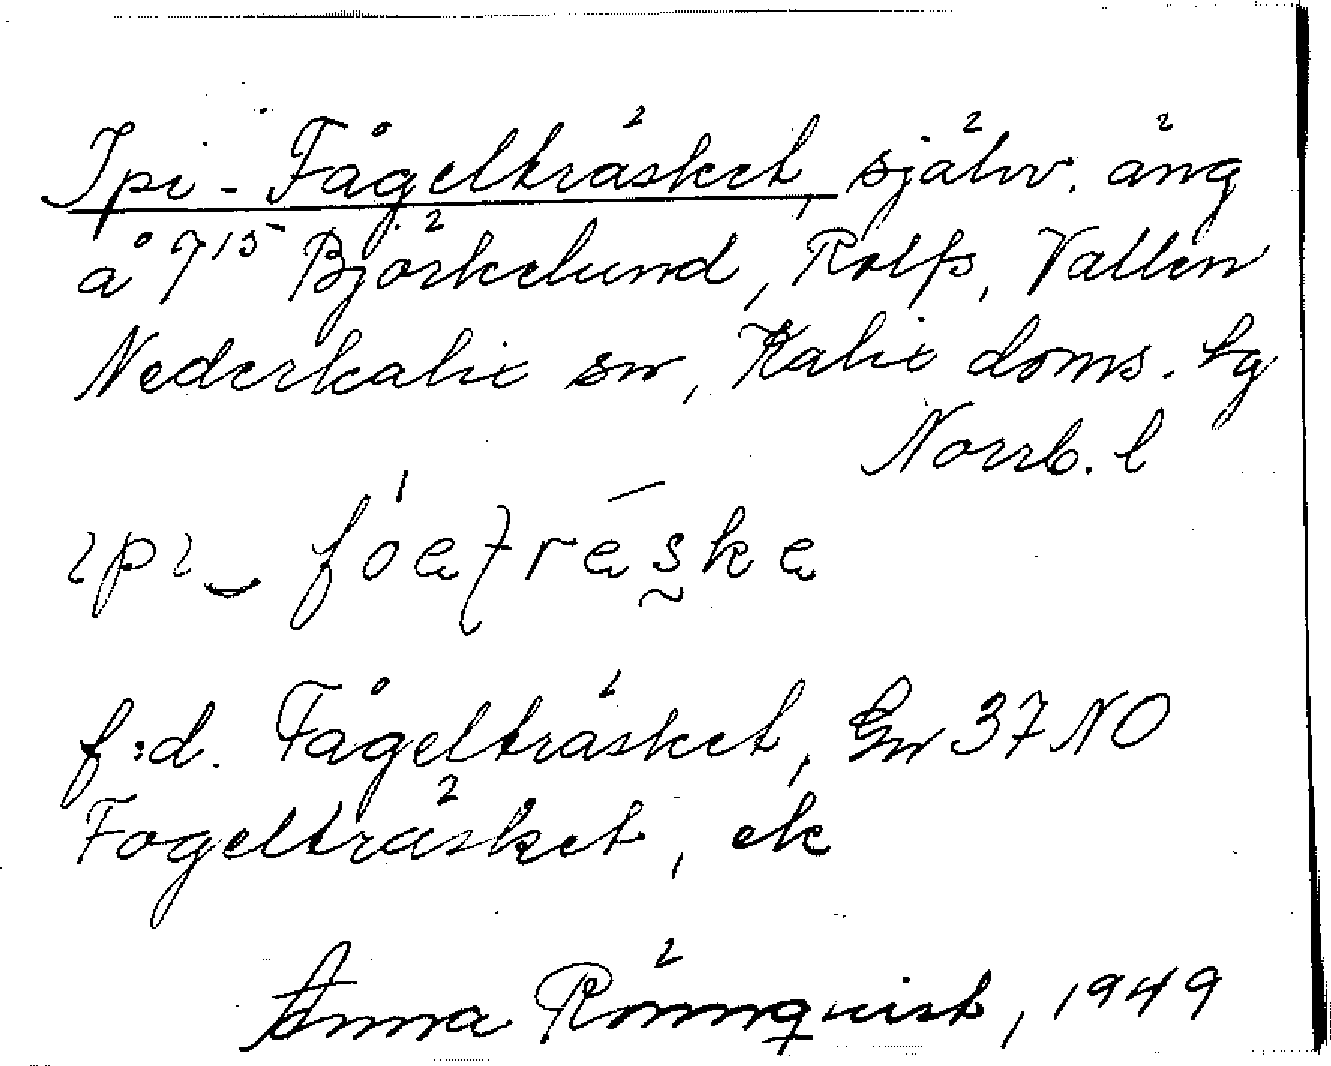 Ipi-Fågelträsket, självv. äng
å 7/15 Björkelund, Rolfs, Vallen
Nederkalix sn, Kalix doms. lg
Norrb. l
ipi- foatraska
f.d. Fågelträsket, Gn 37 NO
Fogelträsket, ek
Anna Rönnquist, 1949